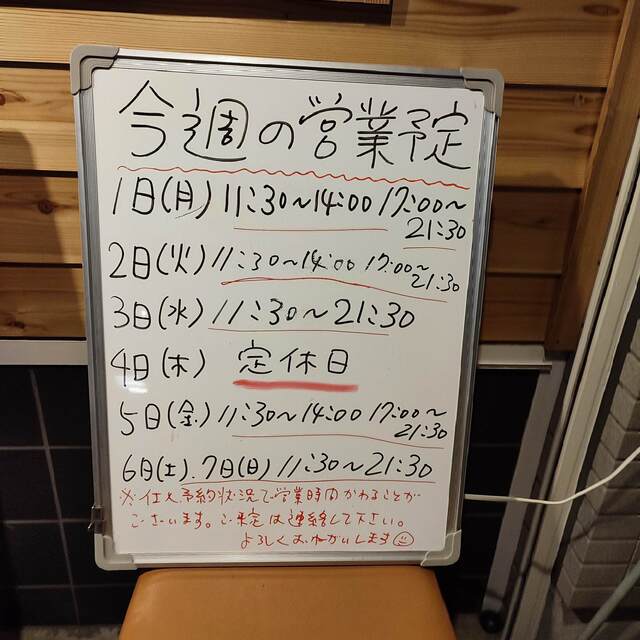 今週の営業予定
1日(月) 11:30～14:00 17:00～
21:30
2日(火) 11:30～14:00 17:00～
21:30
3日(水) 11:30～21:30
4日(木) 定休日
5日(金) 11:30～14:00 17:00～
21:30
6日(土).7日(日) 11:30～21:30
※仕入予約状況で営業時間かわることが
ございます。ご来店は連絡して下さい。
よろしくおねがいします